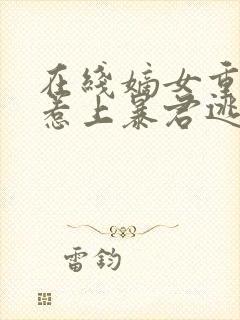 在线嫡女重
惹上暴君逃
雷钧